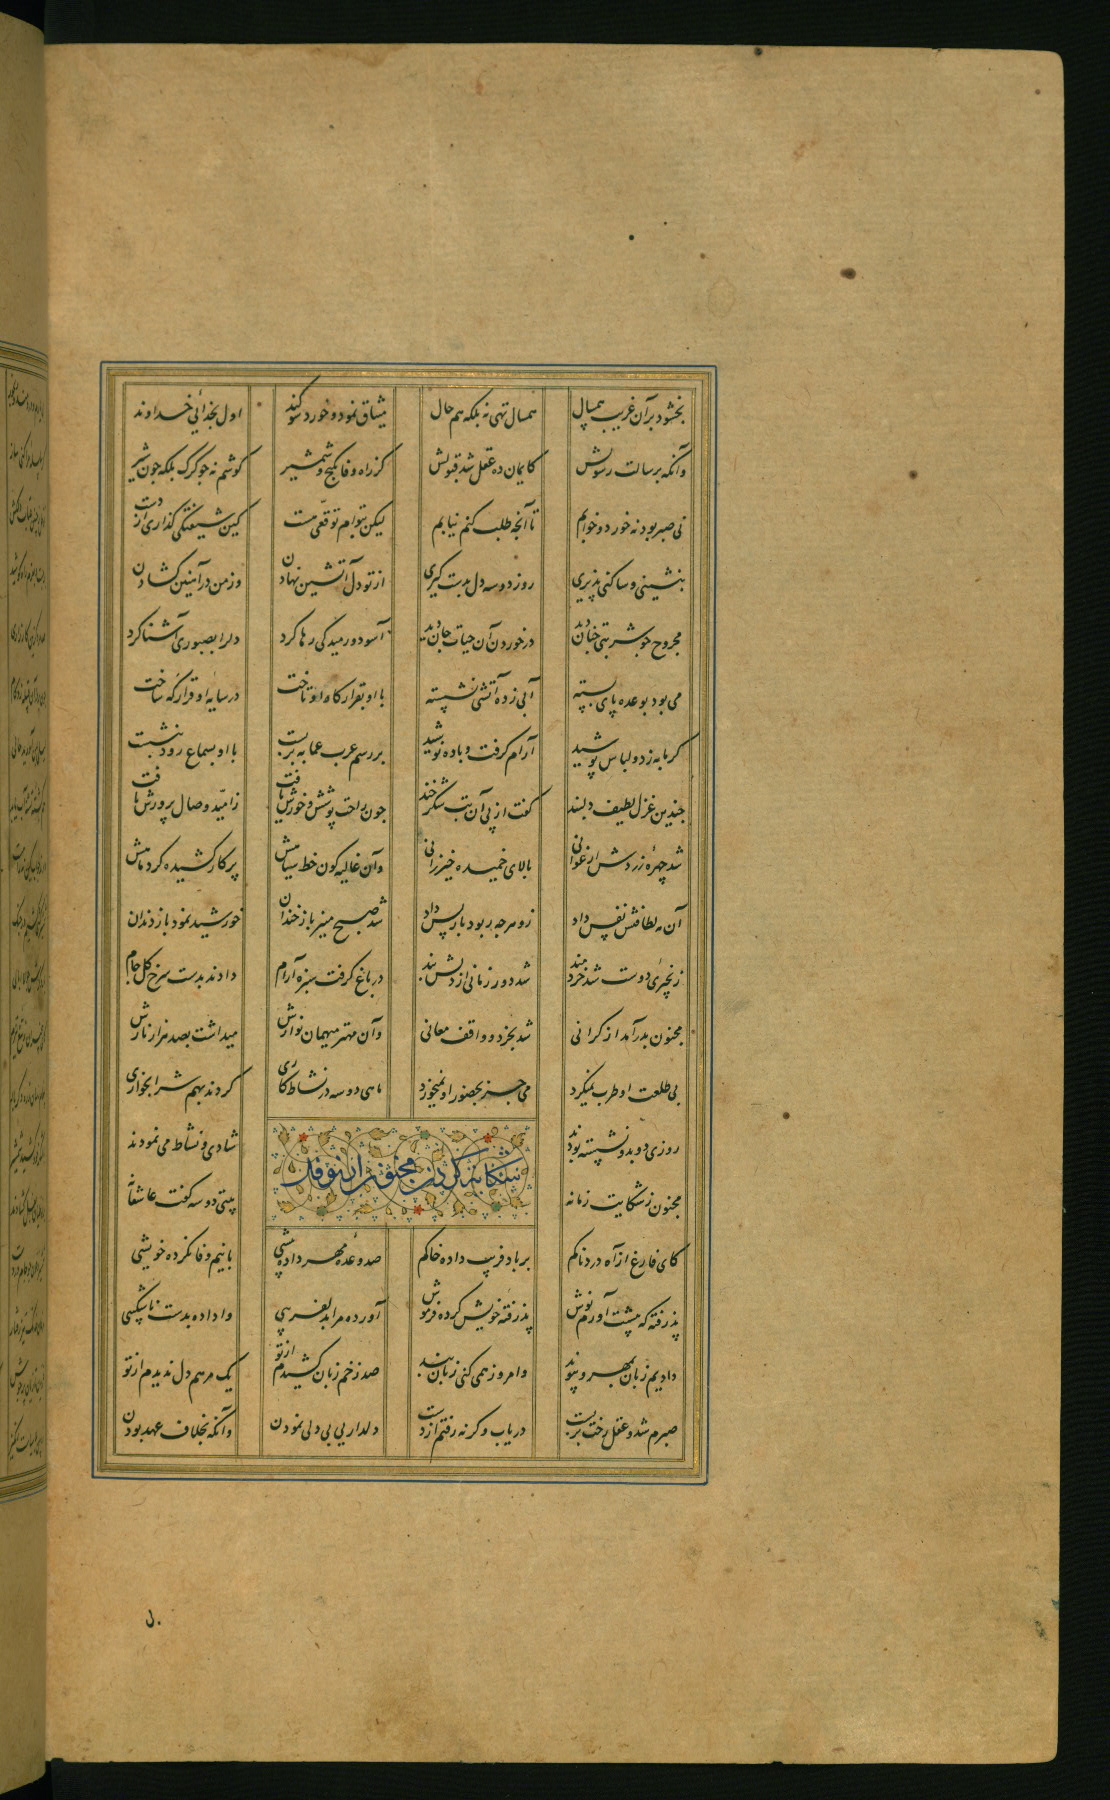 بخشود بر آن غریب همسال همسال تهی نه بلکه هم حال میثاق نمود و خورد سوکند اول بخدائی خداوند
وآنگه برسالت رسولش کایمان ده عقل شد قبولش کز راه وفا بکنج و شمشیر کوشم نه جو کرک بلکه جون شیر
نی صبر بود نه خورد و خوابم تا آنجه طلب کنم نیابم لیکن بتوام توقعی هست کین شیفتگی گذاری از دست
بنشینی و ساکنی پذیری روزی دو سه دل بدست کیری از تو دل آتشین نهادن وز من در آهنین کشادن
مجروح جو شربتی جنان دید در خوردن آن حیات جان دید آسود و رمیدگی رها کرد دل را بصبوری آشنا کرد
می بود بوعده پای بسته آبی زده آتشی نشسته با او بقرارگاه او تاخت در سایه او قرارگه ساخت
کرمابه زد و لباس پوشید آرام کرفت و باده نوشید بر رسم عرب عمامه بربست با او بسماع رود بنشست
جندین غزل لطیف و دلبند کفت از پی آن بت شکرخند جون راحت پوشش و خورش یافت زامید وصال پرورش یافت
شد چهره زردش ارغوانی بالای خمیده خیزرانی وآن غالیه کون خط سیاهش پرکار کشیده کرد ماهش
آن مه لطافتش نفس داد زو هرجه ربود باز پس داد شد صبح منیر باز خندان خورشید نمود باز دندان
زنجیری دوست شد خردمند شد دور زمانی از دلش بند در باغ کرفت سبزه آرام دادند بدست سرخ کل جام
مجنون بدر آمد از کرانی شد بخرد و واقف معانی وآن مهتر میهمان نوازش میداشت بصد هزار نازش
بی طلعت او طرب نمیکرد می جز بحضور او نمیخورد ماهی دو سه در نشاط کاری کردند بهم شرابخواری
روزی دو بدو نشسته بودند شادی و نشاط می نمودند
شکایت کردن مجنون از نوفل
مجنون ز شکایت زمانه بیتی دو سه کفت عاشقانه
کای فارغ از آه دردناکم بر باد فریب داده خاکم صد وعده مهر داده بیشی با نیم وفا نکرده خویشی
پذرفته که پیشت آورم نوش پذرفته خویش کرده فرموش آورده مرا بدلفریبی واداده بدست ناشکیبی
دادیم زبان بمهر و پیوند وامروز همی کنی زبان بند صد زخم زبان کشیدم از تو یک مرهم دل ندیدم از تو
صبرم شد و عقل رخت بربست دریاب و کرنه رفتم از دست دلداریی بی دلی نمودن وآنگه بخلاف عهد بودن